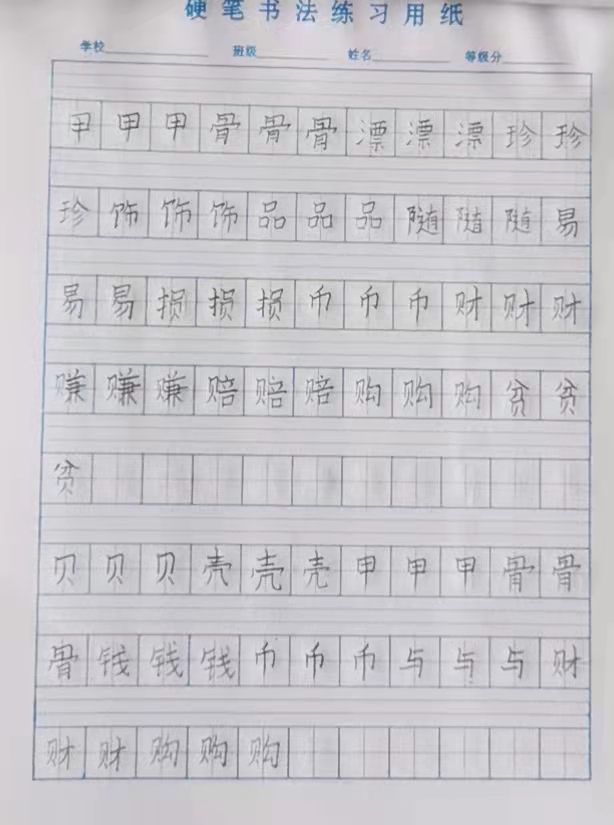 硬笔书法练习用纸
学校 班级 姓名 等级分
甲甲甲骨骨骨漂漂漂珍珍
珍饰饰饰品品品随随随易
易易损损损币币币财财财
赚赚赚赔赔赔购购购贫贫
贫
贝贝贝壳壳壳甲甲甲骨骨
骨钱钱钱币币币与与与财
财财购购购